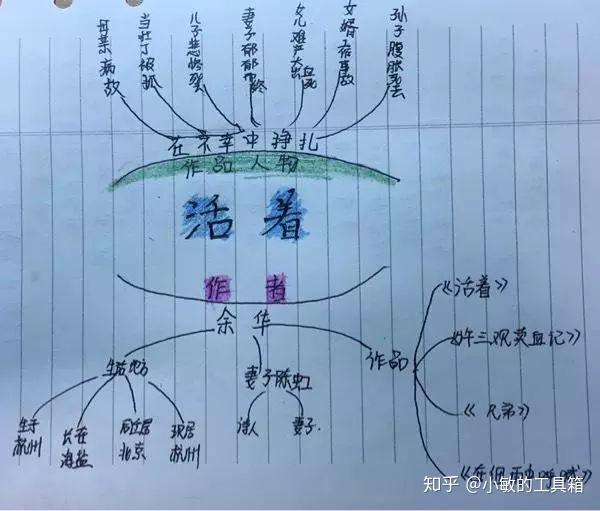 母亲病故
当壮丁被抓
儿子悲惨
妻子郁郁而终
女儿难产大出血死
女婿事故
孙子腹胀死去
在不幸中挣扎
作品人物
活着
作者
余华
生活地方
妻子陈虹
作品
生于
杭州
长在
海盐
居
北京
现居
杭州
诗人
妻子
《活着》
许三观卖血记》
《兄弟》
《在细雨中呼喊》
知乎 @小敏的工具箱